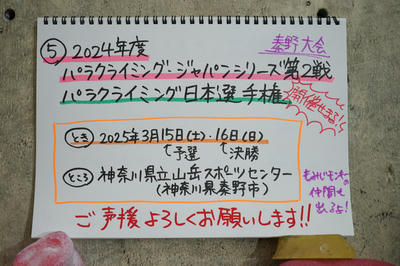 秦野大会
⑤ 2024年度
パラクライミングジャパンシリーズ第2戦
パラクライミング日本選手権
開催せまる!
とき 2025年3月15日(土)・16日(日)
↑予選 ↑決勝
ところ 神奈川県立山岳スポーツセンター
(神奈川県秦野市)
仲間も
出るよ!
ご声援よろしくお願いします!!